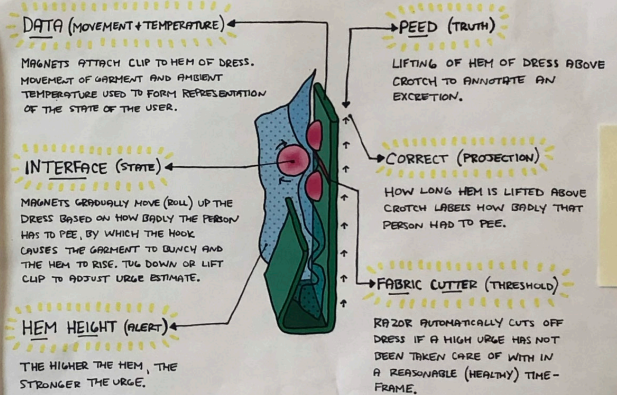 DATA (MOVEMENT + TEMPERATURE)
MAGNETS ATTACH CLIP TO HEM OF DRESS.
MOVEMENT OF GARMENT AND AMBIENT
TEMPERATURE USED TO FORM REPRESENTATION
OF THE STATE OF THE USER.
INTERFACE (STATE)
MAGNETS GRADUALLY MOVE (ROLL) UP THE
DRESS BASED ON HOW BADLY THE PERSON
HAS TO PEE, BY WHICH THE HOOK
CAUSES THE GARMENT TO BUNCH AND
THE HEM TO RISE. TUG DOWN OR LIFT
CLIP TO ADJUST URGE ESTIMATE.
HEM HEIGHT (ALERT)
THE HIGHER THE HEM, THE
STRONGER THE URGE.
PEED (TRUTH)
LIFTING OF HEM OF DRESS ABOVE
CROTCH TO ANNOTATE AN
EXCRETION.
CORRECT (PROJECTION)
HOW LONG HEM IS LIFTED ABOVE
CROTCH LABELS HOW BADLY THAT
PERSON HAD TO PEE.
FABRIC CUTTER (THRESHOLD)
RAZOR AUTOMATICALLY CUTS OFF
DRESS IF A HIGH URGE HAS NOT
BEEN TAKEN CARE OF WITH IN
A REASONABLE (HEALTHY) TIME-
FRAME.